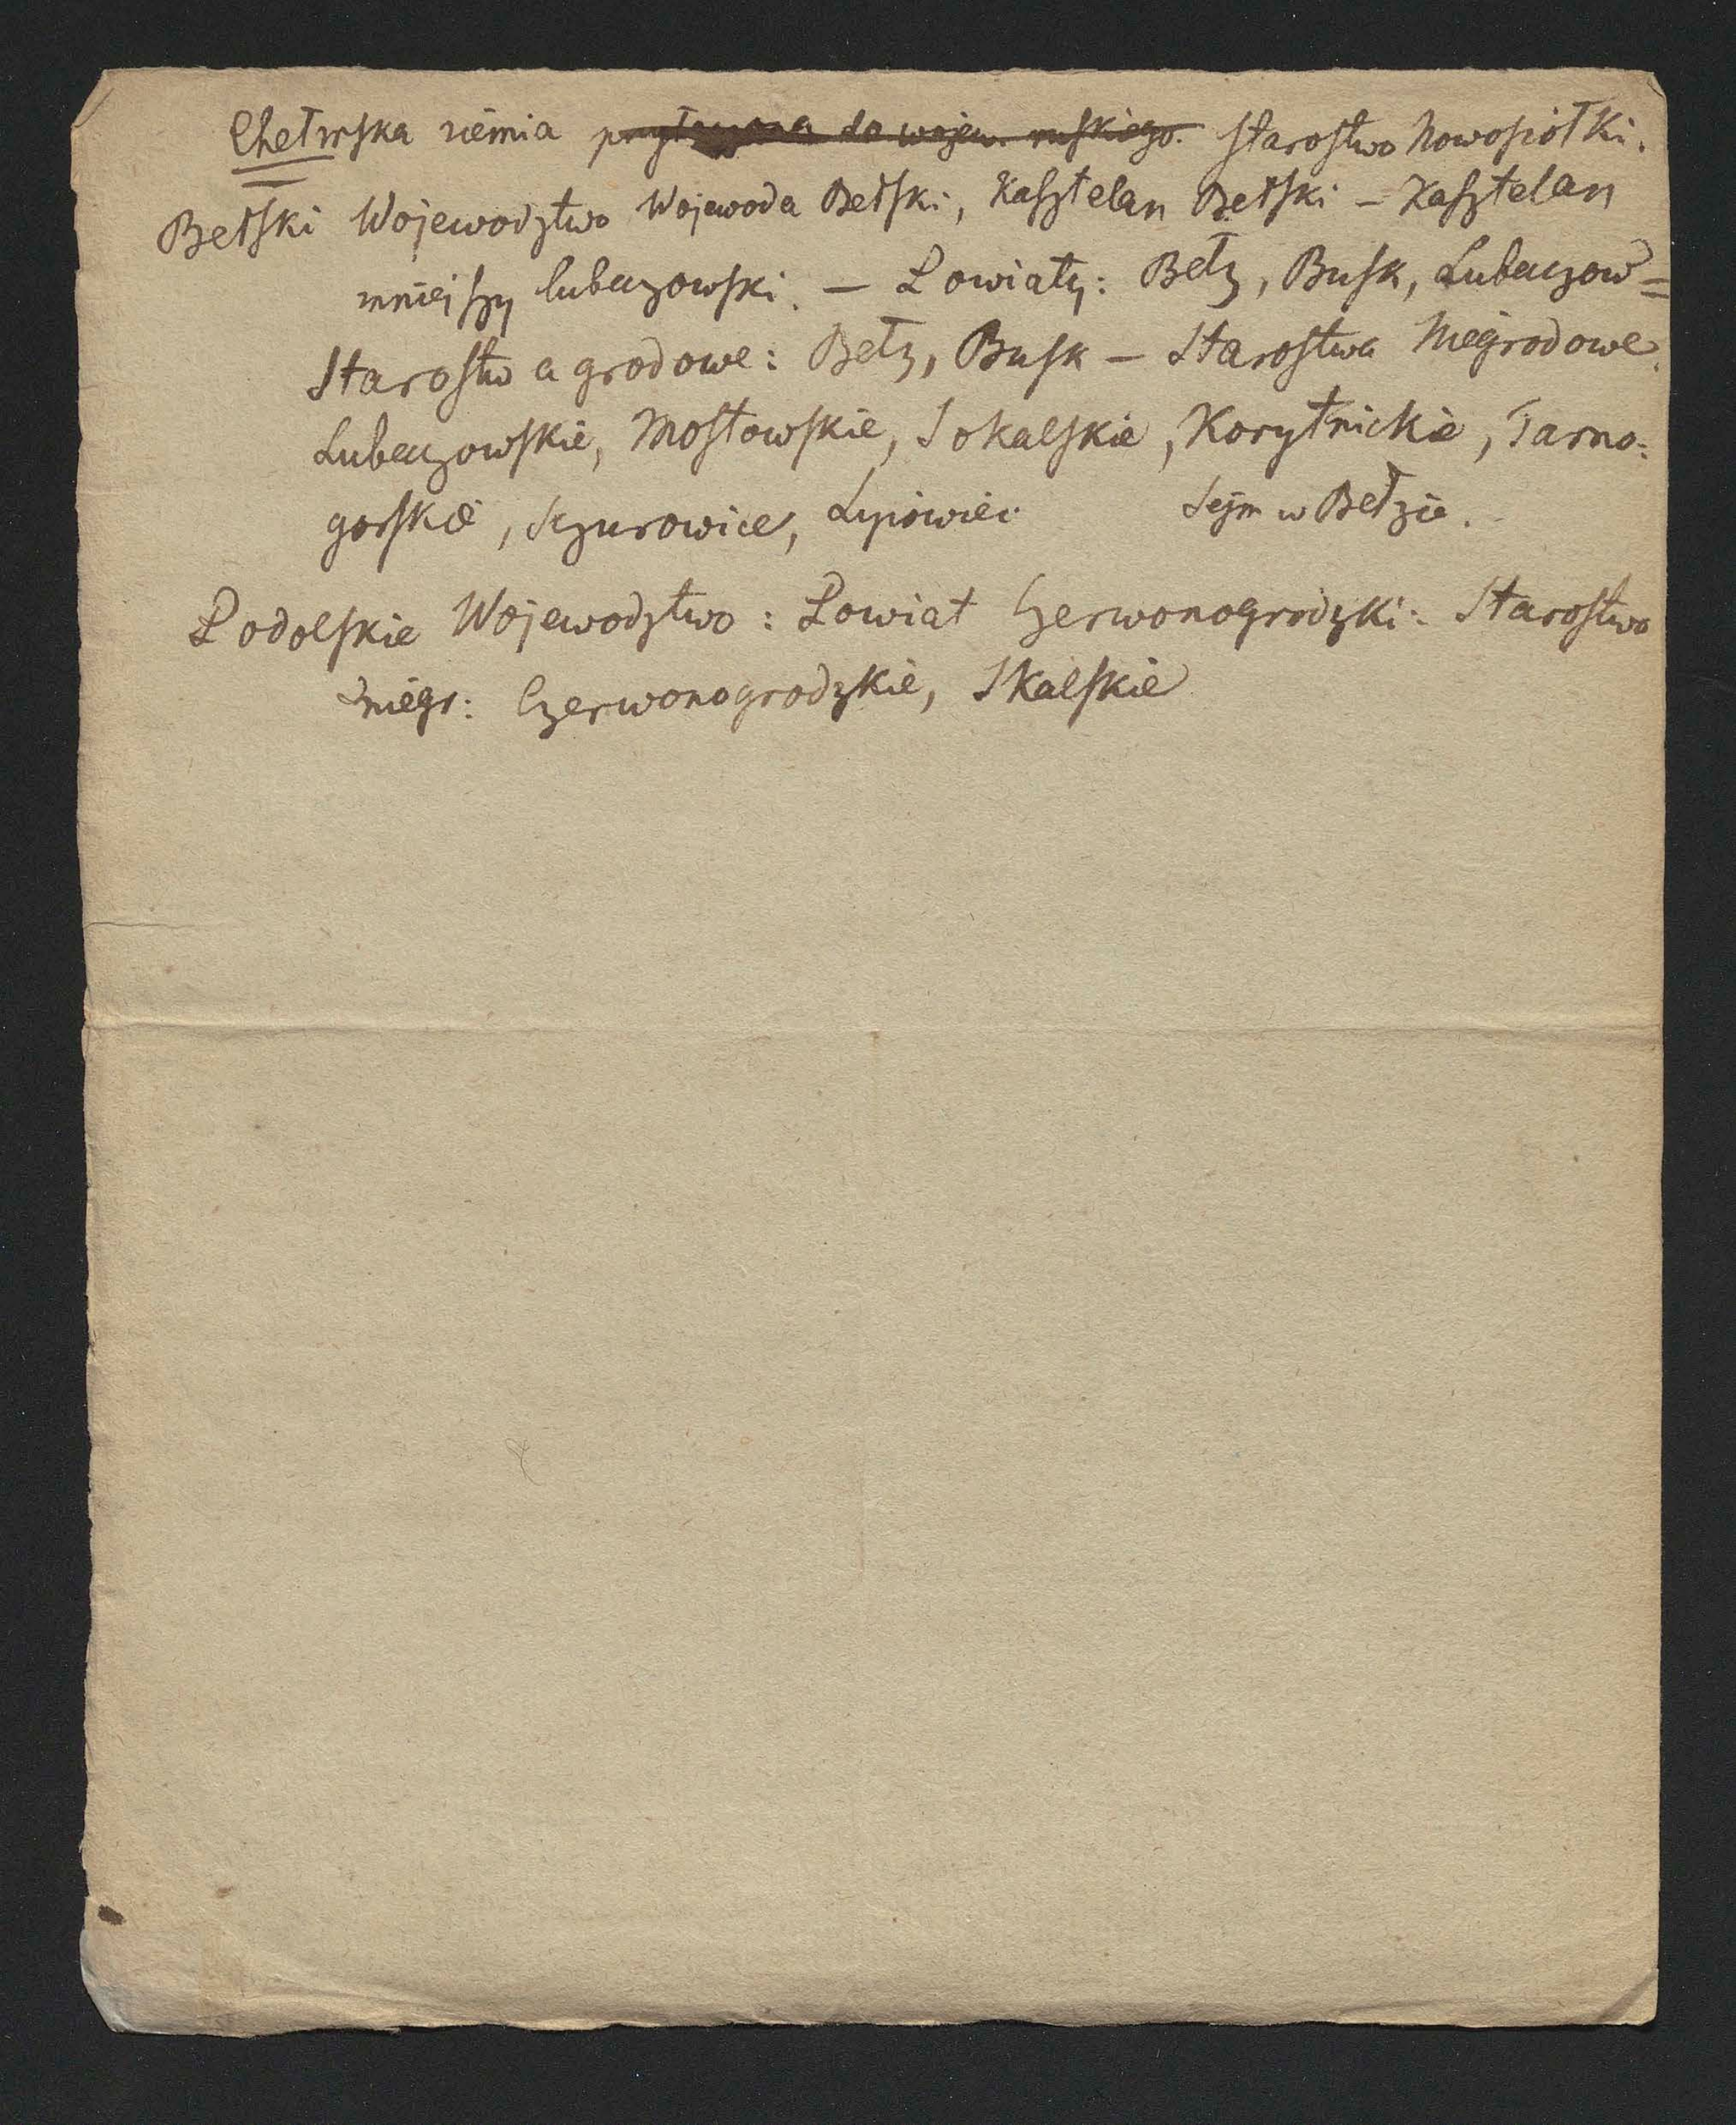 Chełmska ziemia przyłączona do wojew. ruskiego. Starostwo Nowosiołki.
Bełski Wojewodztwo Wojewoda Bełski, Kasztelan Bełski – Kasztelan
mniejszy lubaczowski. – Powiaty: Bełz, Busk, Lubaczow =
Starostwa grodowe: Bełz, Busk – Starostwa Niegrodowe
Lubaczowskie, Mostowskie, Sokalskie, Korytnickie, Tarno:
gorskie, Szczurowice, Lipowiec Sejm w Bełzie.
Podolskie Wojewodztwo: Powiat Czerwonogrodzki: Starostwo
niegr: Czerwonogrodzkie, Skalskie